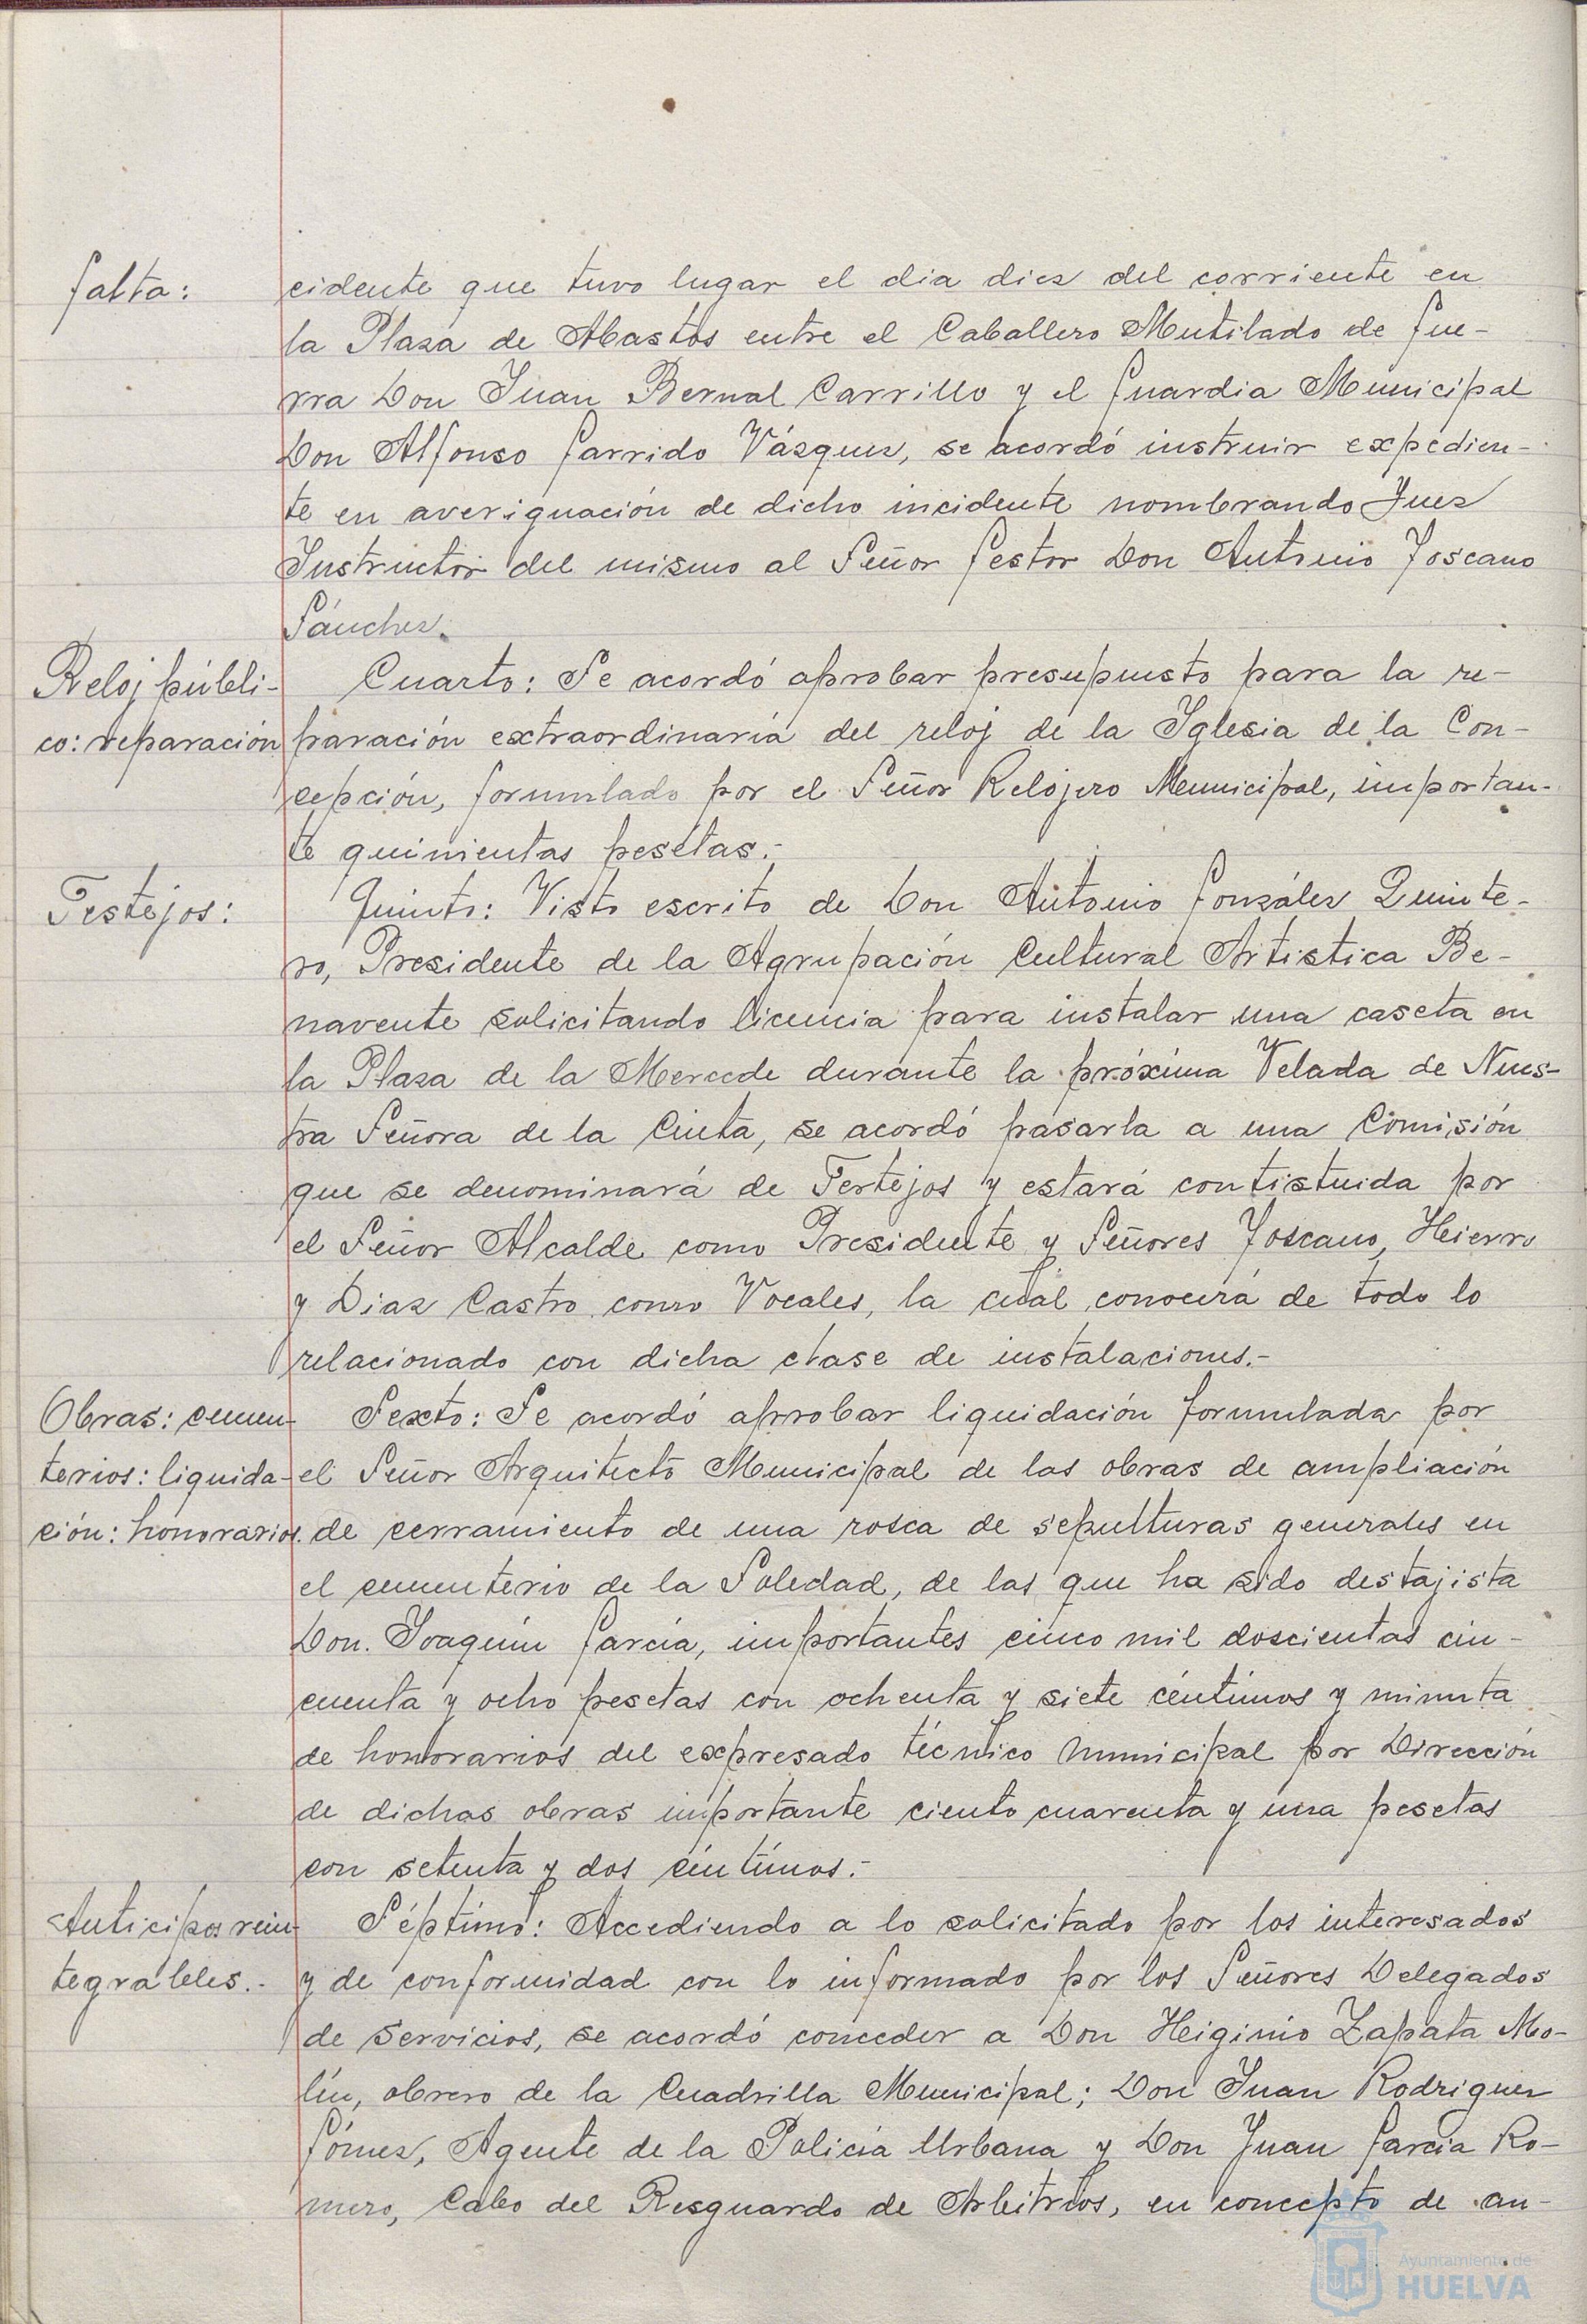 falta:
cidente que tuvo lugar el dia diez del corriente en
la Plaza de Abastos entre el Caballero Mutilado de Gue-
rra Don Juan Bernal Carrillo y el Guardia Municipal
Don Alfonso Garrido Vázquez, se acordó instruir expedien-
te en averiguación de dicho incidente nombrando Juez
Instructor del mismo al Señor Gestor Don Antonio Toscano
Sánchez.
Reloj públi-
co: reparación
Cuarto: Se acordó aprobar presupuesto para la re-
paración extraordinaria del reloj de la Iglesia de la Con-
cepción, formulado por el Señor Relojero Municipal, importan-
te quinientas pesetas.-
Festejos:
Quinto: Visto escrito de Don Antonio González Quinte-
ro, Presidente de la Agrupación Cultural Artistica Be-
navente solicitando licencia para instalar una caseta en
la Plaza de la Mercede durante la próxima Velada de Nues-
tra Señora de la Cinta, se acordó pasarla a una Comisión
que se denominará de Fertejos y estará contistuida por
el Señor Alcalde como Presidente y Señores Toscano, Hierro
y Diaz Castro como Vocales, la cual conocerá de todo lo
relacionado con dicha clase de instalaciones.-
Obras: cemen-
terios: liquida-
ción: honorarios.
Sexto: Se acordó aprobar liquidación formulada por
el Señor Arquitecto Municipal de las obras de ampliación
de cerramiento de una rosca de sepulturas generales en
el cementerio de la Soledad, de las que ha sido destajista
Don. Joaquín García, importantes cinco mil doscientas cin-
cuenta y ocho pesetas con ochenta y siete céntimos y minuta
de honorarios del expresado técnico municipal por Dirección
de dichas obras importante ciento cuarenta y una pesetas
con setenta y dos céntimos.-
Anticipos rein-
tegrables.-
Séptimo: Accediendo a lo solicitado por los interesados
y de conformidad con lo informado por los Señores Delegados
de Servicios, se acordó conceder a Don Heiginio Zapata Mo-
lín, obrero de la Cuadrilla Municipal; Don Juan Rodriguez
Gómez, Agente de la Policía Urbana y Don Juan García Ro-
mero, Cabo del Resguardo de Arbitrios, en concepto de an-
Ayuntamiento de
HUELVA